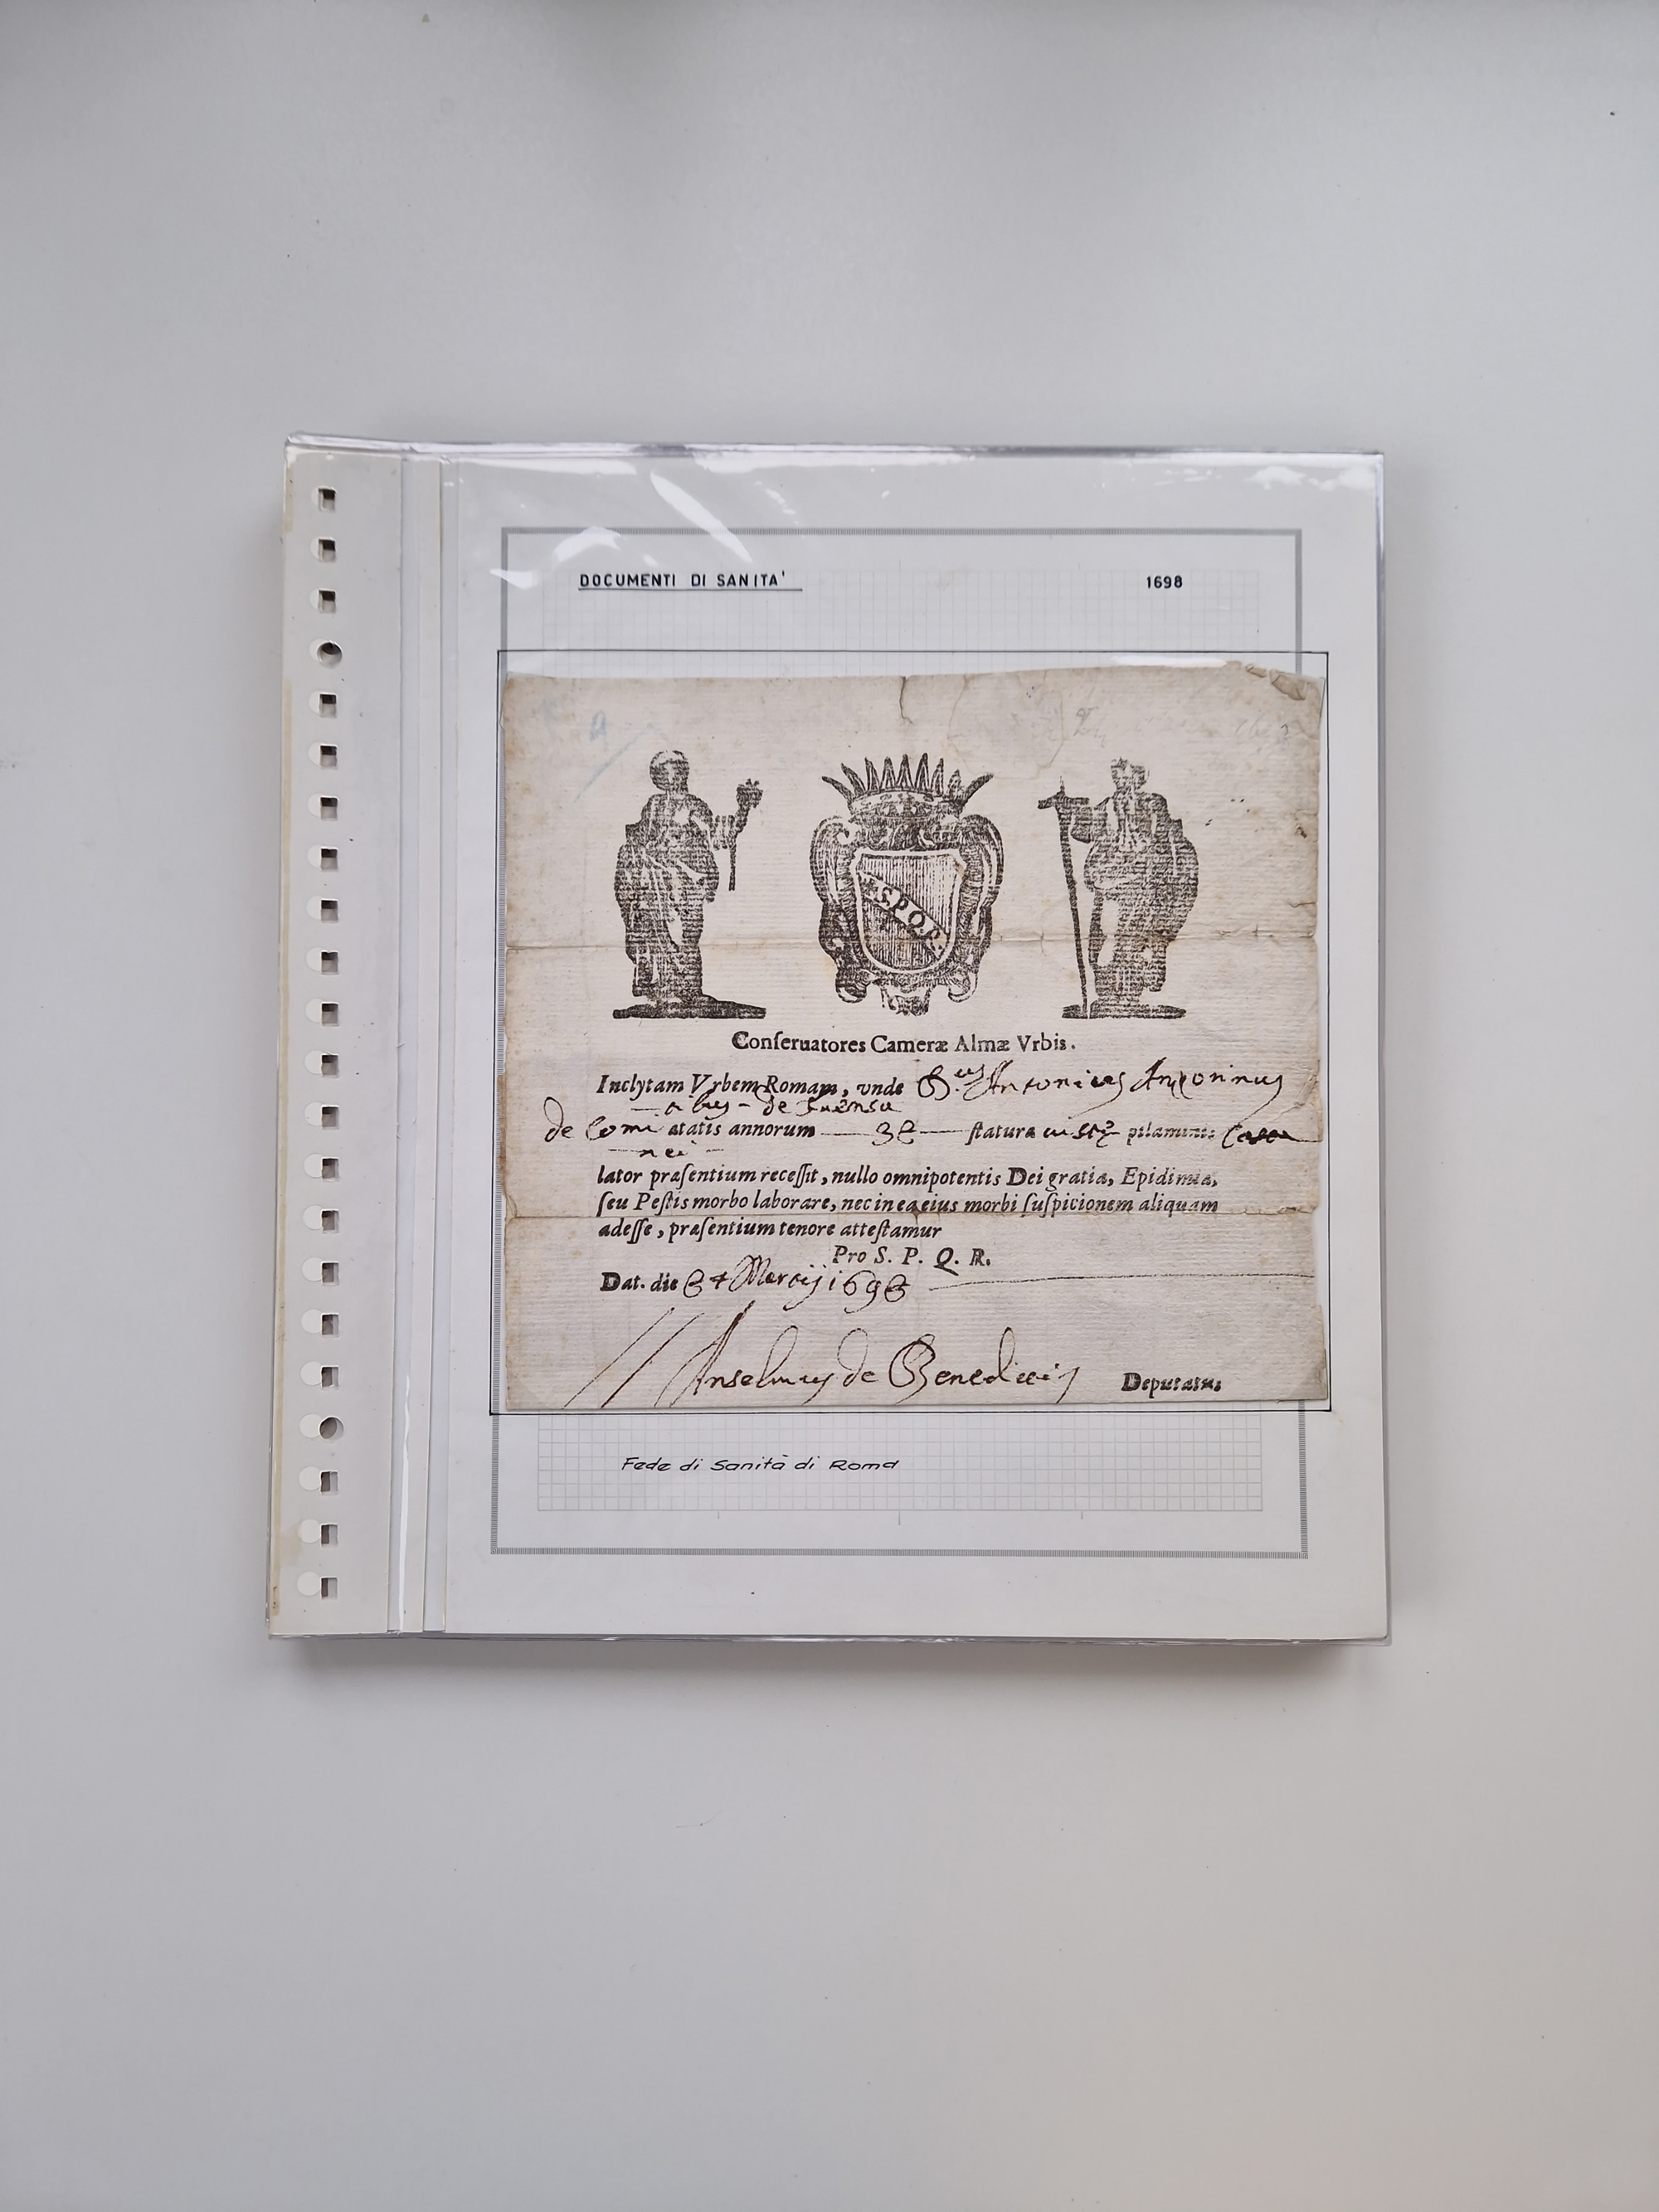 DOCUMENTI DI SANITA'
1698
S.P.Q.R.
Conſeruatores Cameræ Almæ Vrbis.
Inclytam Vrbem Romam, vnde Antonius Antoninus
de
ætatis annorum ſtatura
lator præſentium receſſit, nullo omnipotentis Dei gratia, Epidimia,
ſeu Peſtis morbo laborare, nec in ea eius morbi ſuſpicionem aliquam
adeſſe, præſentium tenore atteſtamur
Pro S. P. Q. R.
Dat. die Martij 1698
Anselmus de Benedictis Deputatus
Fede di Sanità di Roma